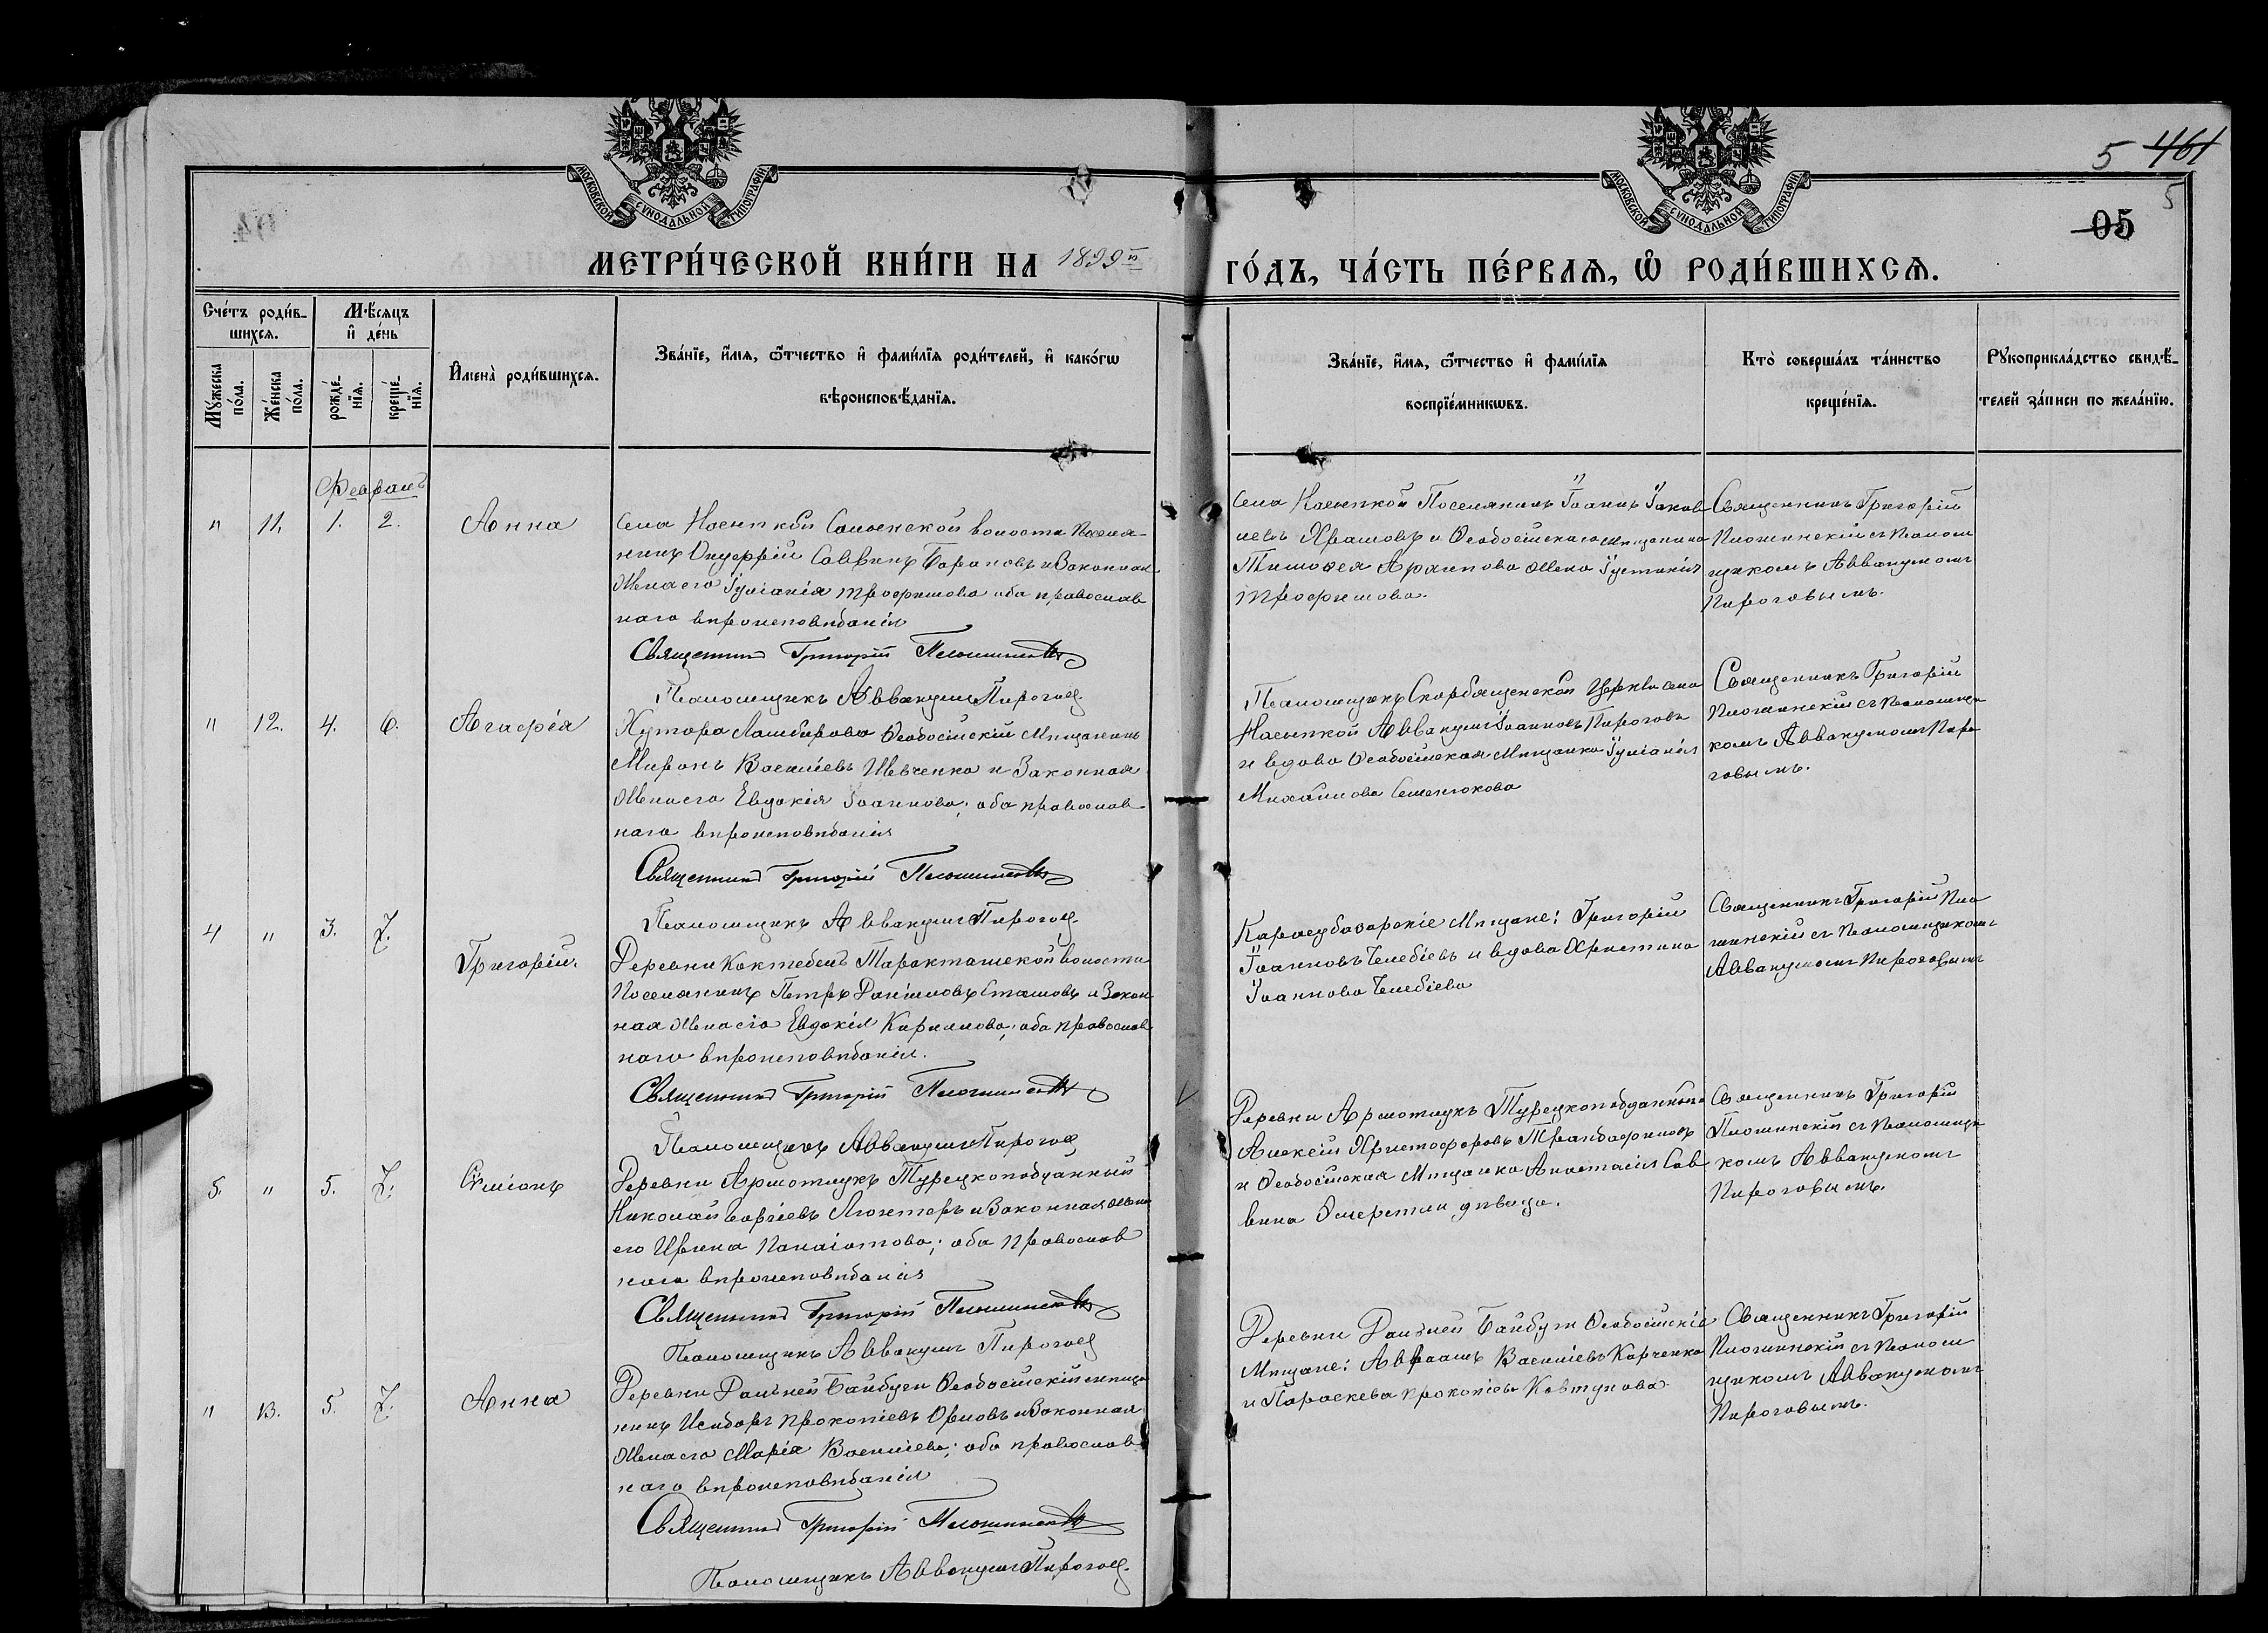 5 461
5
05
МОСКОВСКОЙ СѴНОДАЛЬНОЙ ТИПОГРАФІИ
МОСКОВСКОЙ СѴНОДАЛЬНОЙ ТИПОГРАФІИ
МЕТРИ́ЧЕСКОЙ КНИ́ГИ НА 1899й ГО́ДЪ, ЧА́СТЬ ПЕ́РВАЯ, Ѡ РОДИ́ВШИХСЯ.
Сче́тъ роди́в-
шихся.
Му́жеска по́ла.
Же́нска по́ла.
Мѣ́сяцъ
и҆ де́нь
рожде́-
нїя.
креще́-
нїя.
И҆мена̀ роди́вшихся.
Зва́нїе, и҆́мя, ѻ҆́тчество и҆ фамѝлїя роди́телей, и҆ како́гѡ
вѣроисповѣ́данїя.
Зва́нїе, и҆́мя, ѻ҆́тчество и҆ фамѝлїя
воспрїе́мникѡвъ.
Кто̀ соверша́лъ та́инство
креще́нїя.
Рꙋкоприкла́дство свидѣ́-
телей за́писи по жела́нїю.
Февраль
" 11. 1. 2. Анна
Села Насыпкой Салынской волости поселя-
нинъ Онуфрій Саввинъ Барановъ и законная
жена его Іуліанія Трофимова оба православ
наго вѣроисповѣданія
Священникъ Григорій
Псаломщикъ Аввакумъ Пироговъ
Села Насыпкой Поселянинъ Іоаннъ Іаков
левъ Храмовъ и Ѳеодосійскаго мѣщанина
Тимоѳея Архипова жена Іустинія
Трофимова.
Священникъ Григорій
съ Псалом
щикомъ Аввакумомъ
Пироговымъ.
" 12. 4. 6. Агафія
Хутора Ѳеодосійскій мѣщанинъ
Миронъ Васильевъ Шевченко и законная
жена его Евдокія Іоаннова; оба православ-
наго вѣроисповѣданія
Священникъ Григорій
Псаломщикъ Аввакумъ Пироговъ
Псаломщикъ Скорбященской церкви села
Насыпкой Аввакумъ Іоанновъ Пироговъ
и вдова Ѳеодосійская мѣщанка Іуліанія
Михайлова Семенюкова
Священникъ Григорій
съ псаломщи
комъ Аввакумомъ Пиро
говымъ.
4 " 3. 7. Григорій
Деревни Коктебель Таракташской волости
Поселянинъ Петръ Даніиловъ и закон
ная жена его Евдокія Кириллова; оба православ
наго вѣроисповѣданія.
Священникъ Григорій
Псаломщикъ Аввакумъ Пироговъ
Карасубазарскіе Мѣщане: Григорій
Іоанновъ Челебіевъ и вдова Христина
Іоаннова Челебіева
Священникъ Григорій
съ псаломщикомъ
Аввакумомъ Пироговымъ
5. " 5. 7. Сѵміонъ
Деревни Армотлукъ Турецкоподданный
Николай Георгіевъ и законная жена
его Ирина Панаіотова; оба православ
наго вѣроисповѣданія
Священникъ Григорій
Псаломщикъ Аввакумъ Пироговъ
Деревни Армотлукъ Турецкоподданный
Алексій Христофоровъ
и Ѳеодосійская мѣщанка Анастасія Сав
вина дѣвица.
Священникъ Григорій
съ псаломщи
комъ Аввакумомъ
Пироговымъ.
" 13. 5. 7. Анна
Деревни Дальней Байбуги Ѳеодосійскій мѣща
нинъ Исидоръ Прокопіевъ Орловъ и законная
жена его Марія Васильева; оба православ
наго вѣроисповѣданія
Священникъ Григорій
Псаломщикъ Аввакумъ Пироговъ
Деревни Дальней Байбуги Ѳеодосійскіе
Мѣщане: Авраамъ Васильевъ Харченко
и Параскева Прокопіева Ковтунова
Священникъ Григорій
съ псалом
щикомъ Аввакумомъ
Пироговымъ.